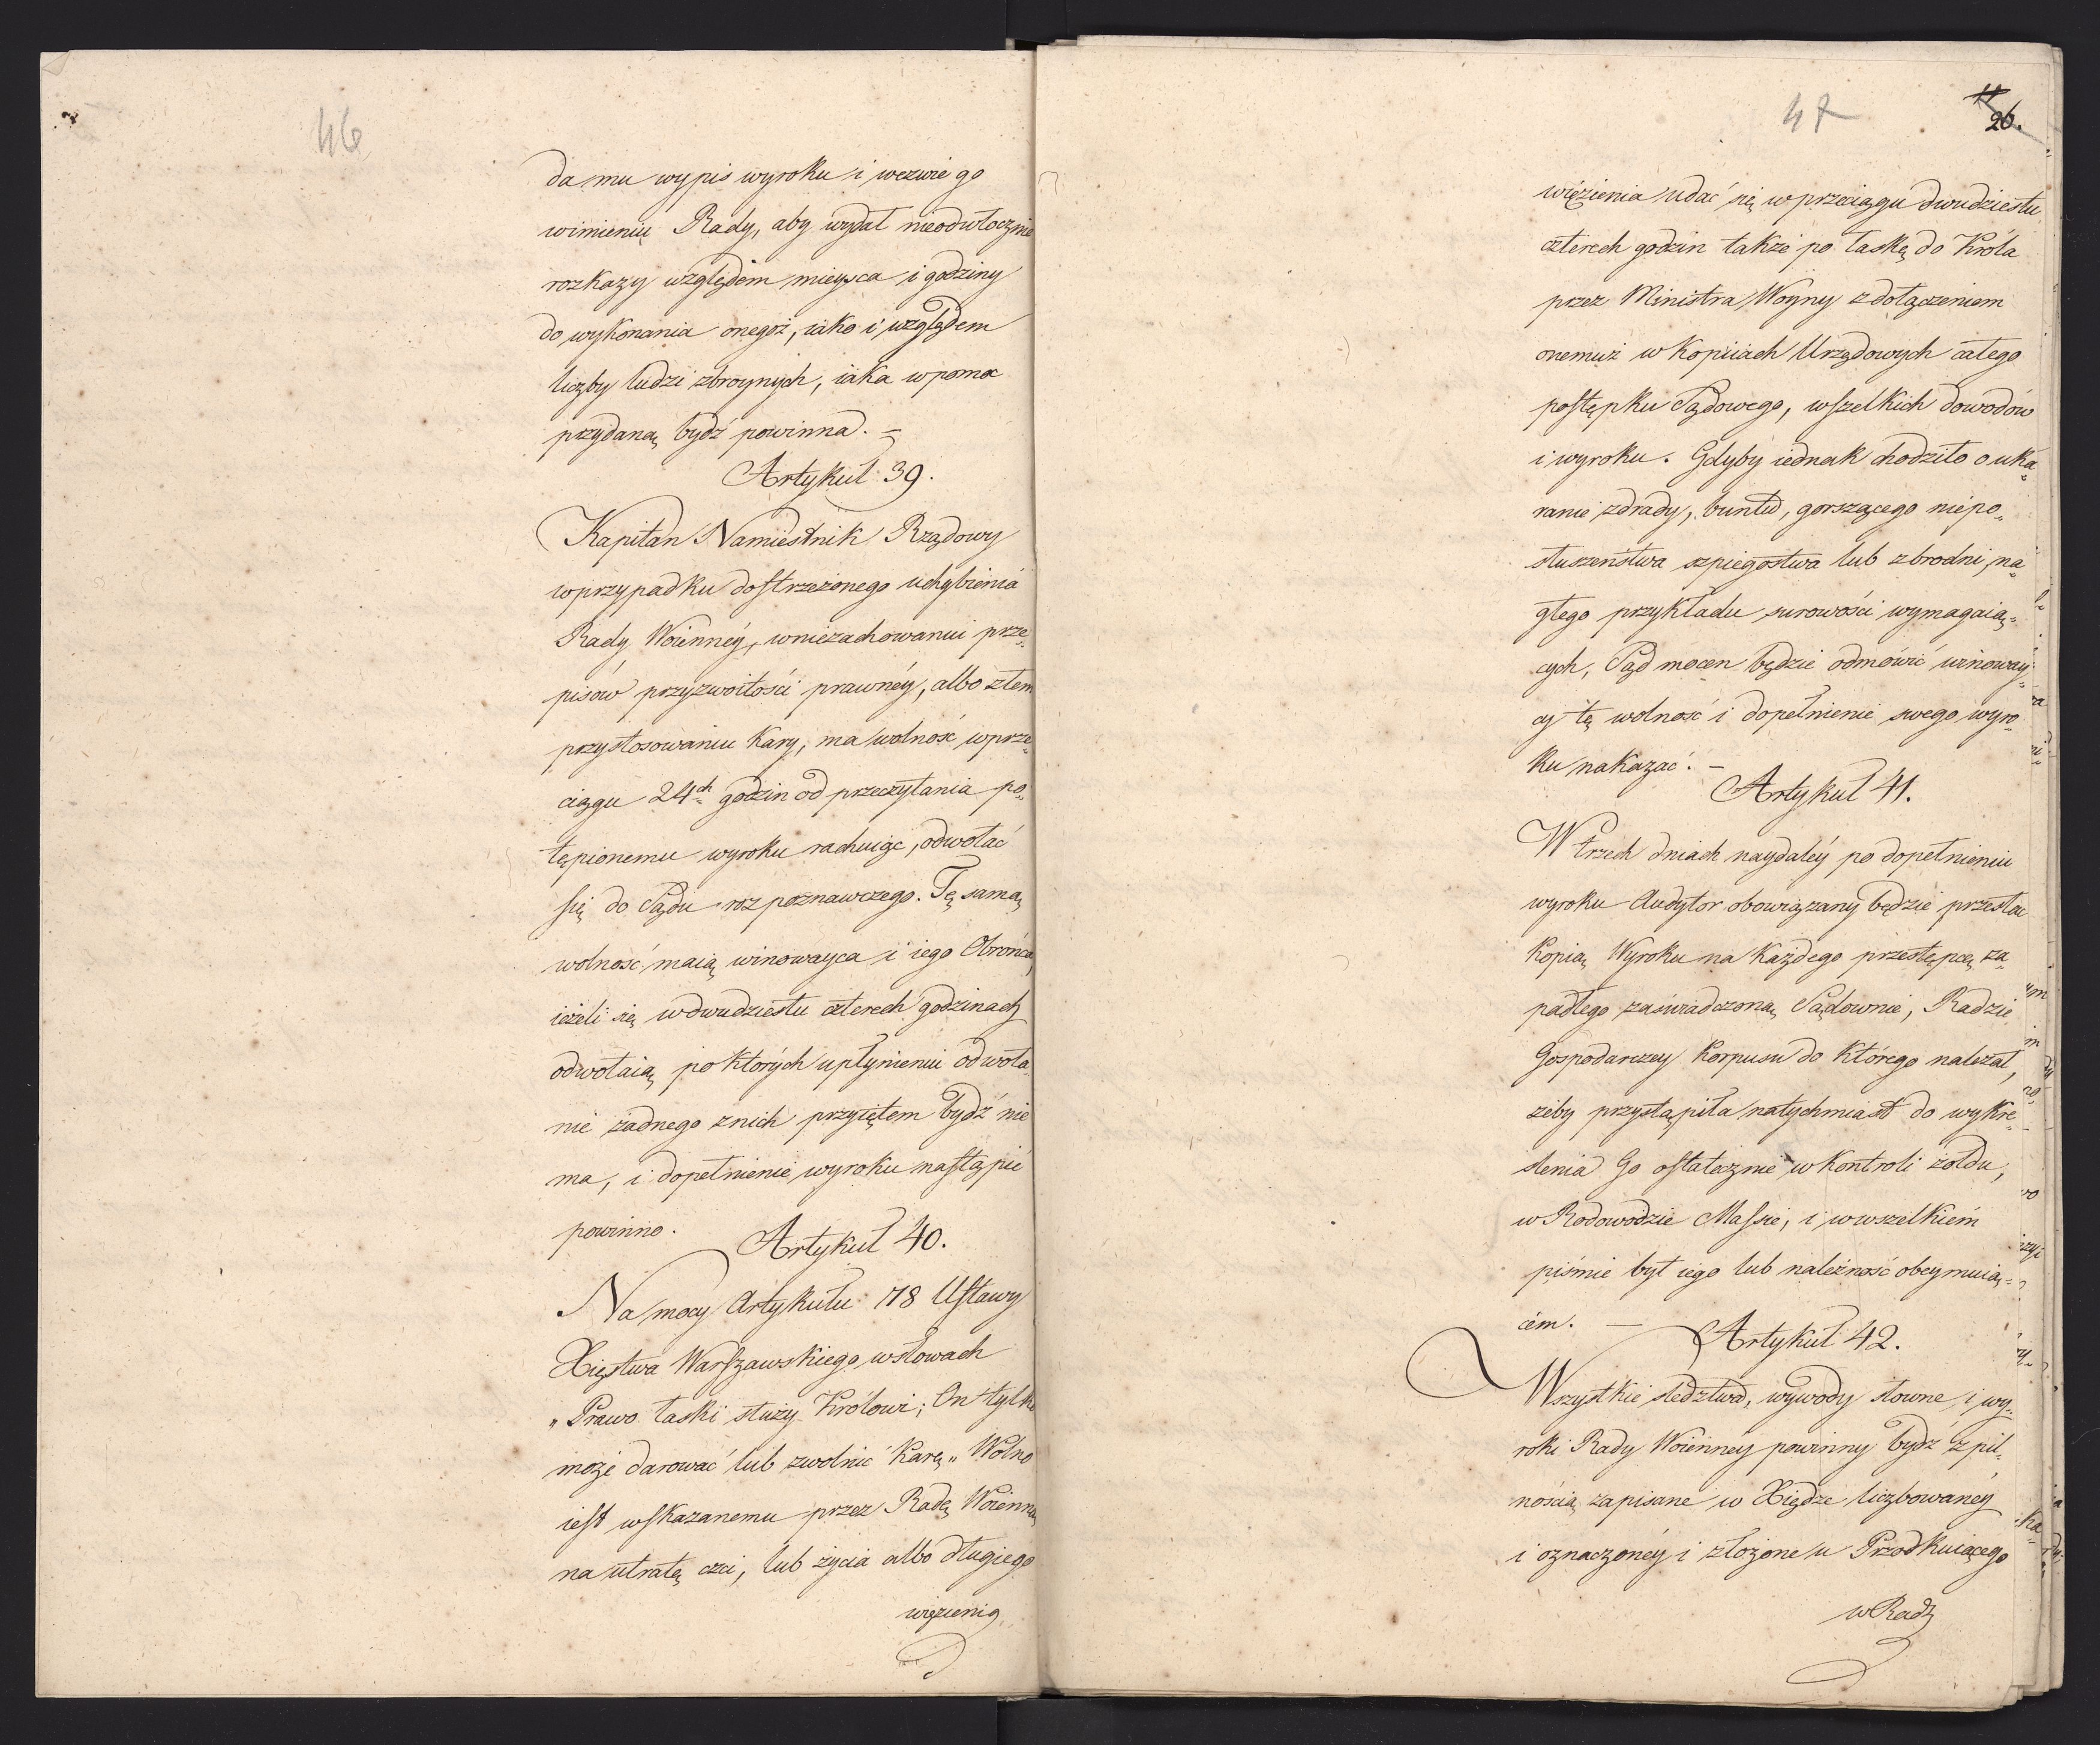 46
da mu wypis wyroku i wezwie go
w imieniu Rady, aby wydał nieodwłocznie
rozkazy względem mieysca i godziny
do wykonania onegoż, iako i względem
liczby ludzi zbroynych, iaka w pomoc
przydaną bydź powinna. –
Artykuł 39.
Kapitan Namiestnik Rządowy
w przypadku dostrzeżonego uchybienia
Rady Woienney, w niezachowaniu prze„
pisów przyzwoitości prawney, albo złem
przystosowaniu kary, ma wolność w prze„
ciągu 24ch godzin od przeczytania po„
tępionemu wyroku rachuiąc, odwołać
się do Sądu rozpoznawczego. Tę samą
wolność maią winowayca i iego Obrońca,
ieżeli się w dwudziestu czterech godzinach
odwołaią, po których upłynieniu odwoła
nie żadnego z nich przyiętem bydź nie
ma, i dopełnienie wyroku nastąpić
powinno.
Artykuł 40.
Na mocy Artykułu 78 Ustawy
Xięstwa Warszawskiego w słowach
„Prawo łaski służy Królowi; On tylko
może darować lub zwolnić karę„ Wolno
iest wskazanemu przez Radę Woienną
na utratę czci, lub życia albo długiego
więzienia
47
11
26.
więzienia udać się w przeciągu dwudziestu
czterech godzin także po łaskę do Króla
przez Ministra Woyny z dołączeniem
onemuż w kopiiach Urzędowych całego
postępku Sądowego, wszelkich dowodów
i wyroku. Gdyby iednak chodziło o uka„
ranie zdrady, buntu, gorszącego niepo„
słuszeństwa szpiegostwa lub zbrodni, na„
głego przykładu surowości wymagaią„
cych, Sąd mocen będzie odmówić winoway„
cy tę wolność i dopełnienie swego wyro„
ku nakazać. –
Artykuł 41.
W trzech dniach naydaley po dopełnieniu
wyroku Audytor obowiązany będzie przesłac
kopią Wyroku na każdego przestępcę za„
padłego zaświadczoną Sądownie, Radzie
Gospodarczey Korpusu do którego należał,
żeby przystąpiła natychmiast do wykre„
slenia Go ostatecznie w kontroli żołdu,
w Rodowodzie Massie, i w wszelkiém
piśmie byt iego lub należność obeymuią„
cém. –
Artykuł 42.
Wszystkie sledztwa, wywody słowne i wy„
roki Rady Woienney powinny bydź z pil„
nością zapisane w Xiędze liczbowaney
i oznaczoney i złożone u Przodkuiącego
w Radz